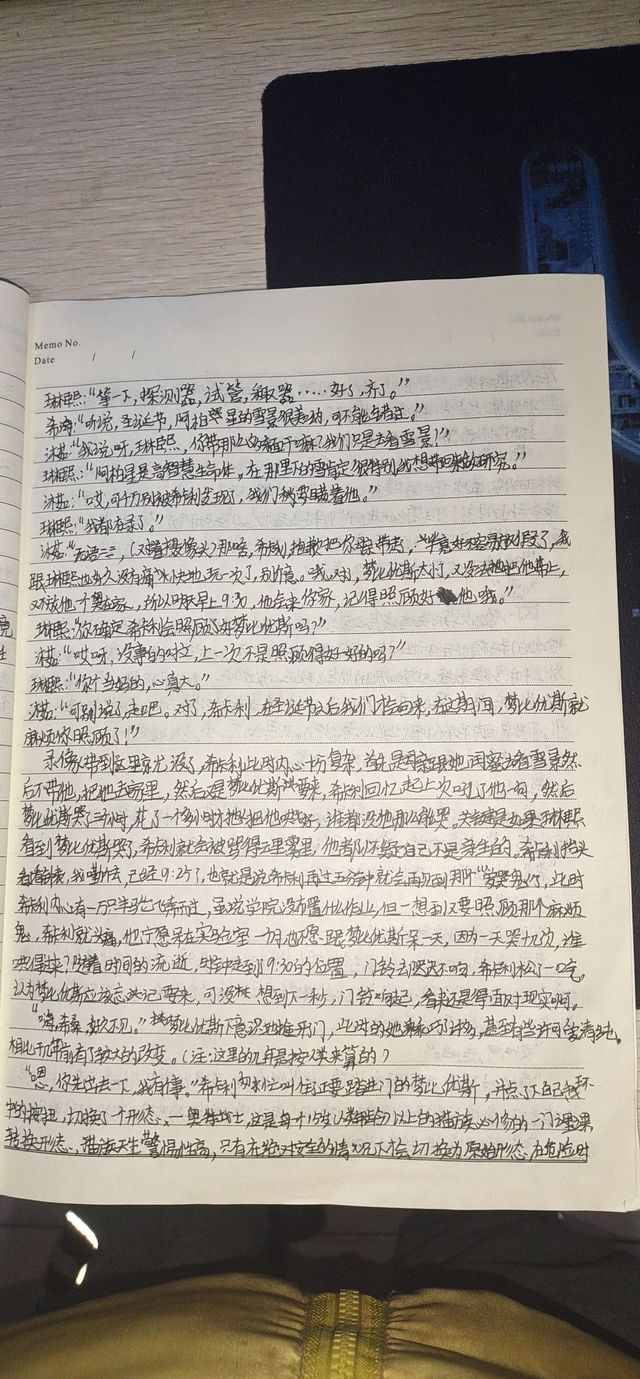 Memo No.
Date / /
琳熙：“等一下，探测器，试管，容器……好了，齐了。”
希鸿：“听说，圣诞节，阿柏星的雪景很美的，可不能错过。”
沐茹：“我说呀，琳熙，你带那么多东西干嘛？我们只是去看雪景！”
琳熙：“阿柏星是高智慧生命体，在那里下的雪肯定很特别，我想带回来做研究。”
沐茹：“哎，可千万别被希卡利发现了，我们秘密瞒着他。”
琳熙：“我都在录了。”
沐茹：“无语，（对着摄像头）那啥，希卡利，抱歉把你忘带走，毕竟好不容易放假了，我
跟琳熙也好久没有痛痛快快地玩一次了，别介意。哦，对了，梦比优斯太小了，又没法把他带上，
又不放他一个人在家，所以明天早上9:30，他会来你家，记得照顾好他哦。”
琳熙：“你确定希卡利会照顾好梦比优斯吗？”
沐茹：“哎呀，没事的啦，上一次不是照顾得好好的吗？”
琳熙：“你个当妈的，心真大。”
沐茹：“可别说了，走吧。对了，希卡利，圣诞节以后我们才会回来，在这期间，梦比优斯就
麻烦你照顾了！”
录像带到这里就没了，希卡利此时内心十分复杂，首先是母亲跟她闺蜜去看雪景然
后不带他，把他丢家里，然后又是梦比优斯要来，希卡利回忆起上次吼了他一句，然后
梦比优斯哭了三小时，花了一个多小时才把他哄好，谁都没他那么能哭。关键是如果琳熙
看到梦比优斯哭了，希卡利就会被骂得云里雾里，他都怀疑自己不是亲生的。希卡利抬头
看着钟表，已经9:25了，也就是说希卡利再过五分钟就会再见到那个“爱哭鬼”了，此时
希卡利内心有一万只羊驼飞奔而过，虽说学院没布置什么作业，但一想到又要照顾那个麻烦
鬼，希卡利就头痛，他宁愿呆在实验室一个月也不愿跟梦比优斯呆一天，因为一天哭十几次，谁
哄得来？随着时间的流逝，时钟走到9:30的位置，门铃声却迟迟不响，希卡利松了一口气。
以为梦比优斯应该忘记要来，可没想到下一秒，门铃响起，看来还是得面对现实啊。
“嗨，希桑，好久不见。”梦比优斯下意识地推开门，此时的他乖巧了许多，甚至有些许可爱清纯，
相比于几年前有了较大的改变。（注：这里的几年是按人类来算的）
“嗯，你先出去一下，我有事。”希卡利匆忙叫住正要踏进门的梦比优斯，并点了下自己手环
中的按钮，切换了一个形态，—奥特战士，这是每个15岁（人类年龄）以上的猫族必修的一门课
转换形态，猫族天生警惕性高，只有在绝对安全的情况下才会切换为原始形态，在危险时